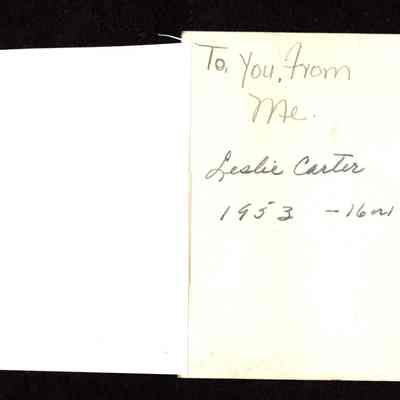 To, You, From
Me.
Leslie Carter
1953 -16